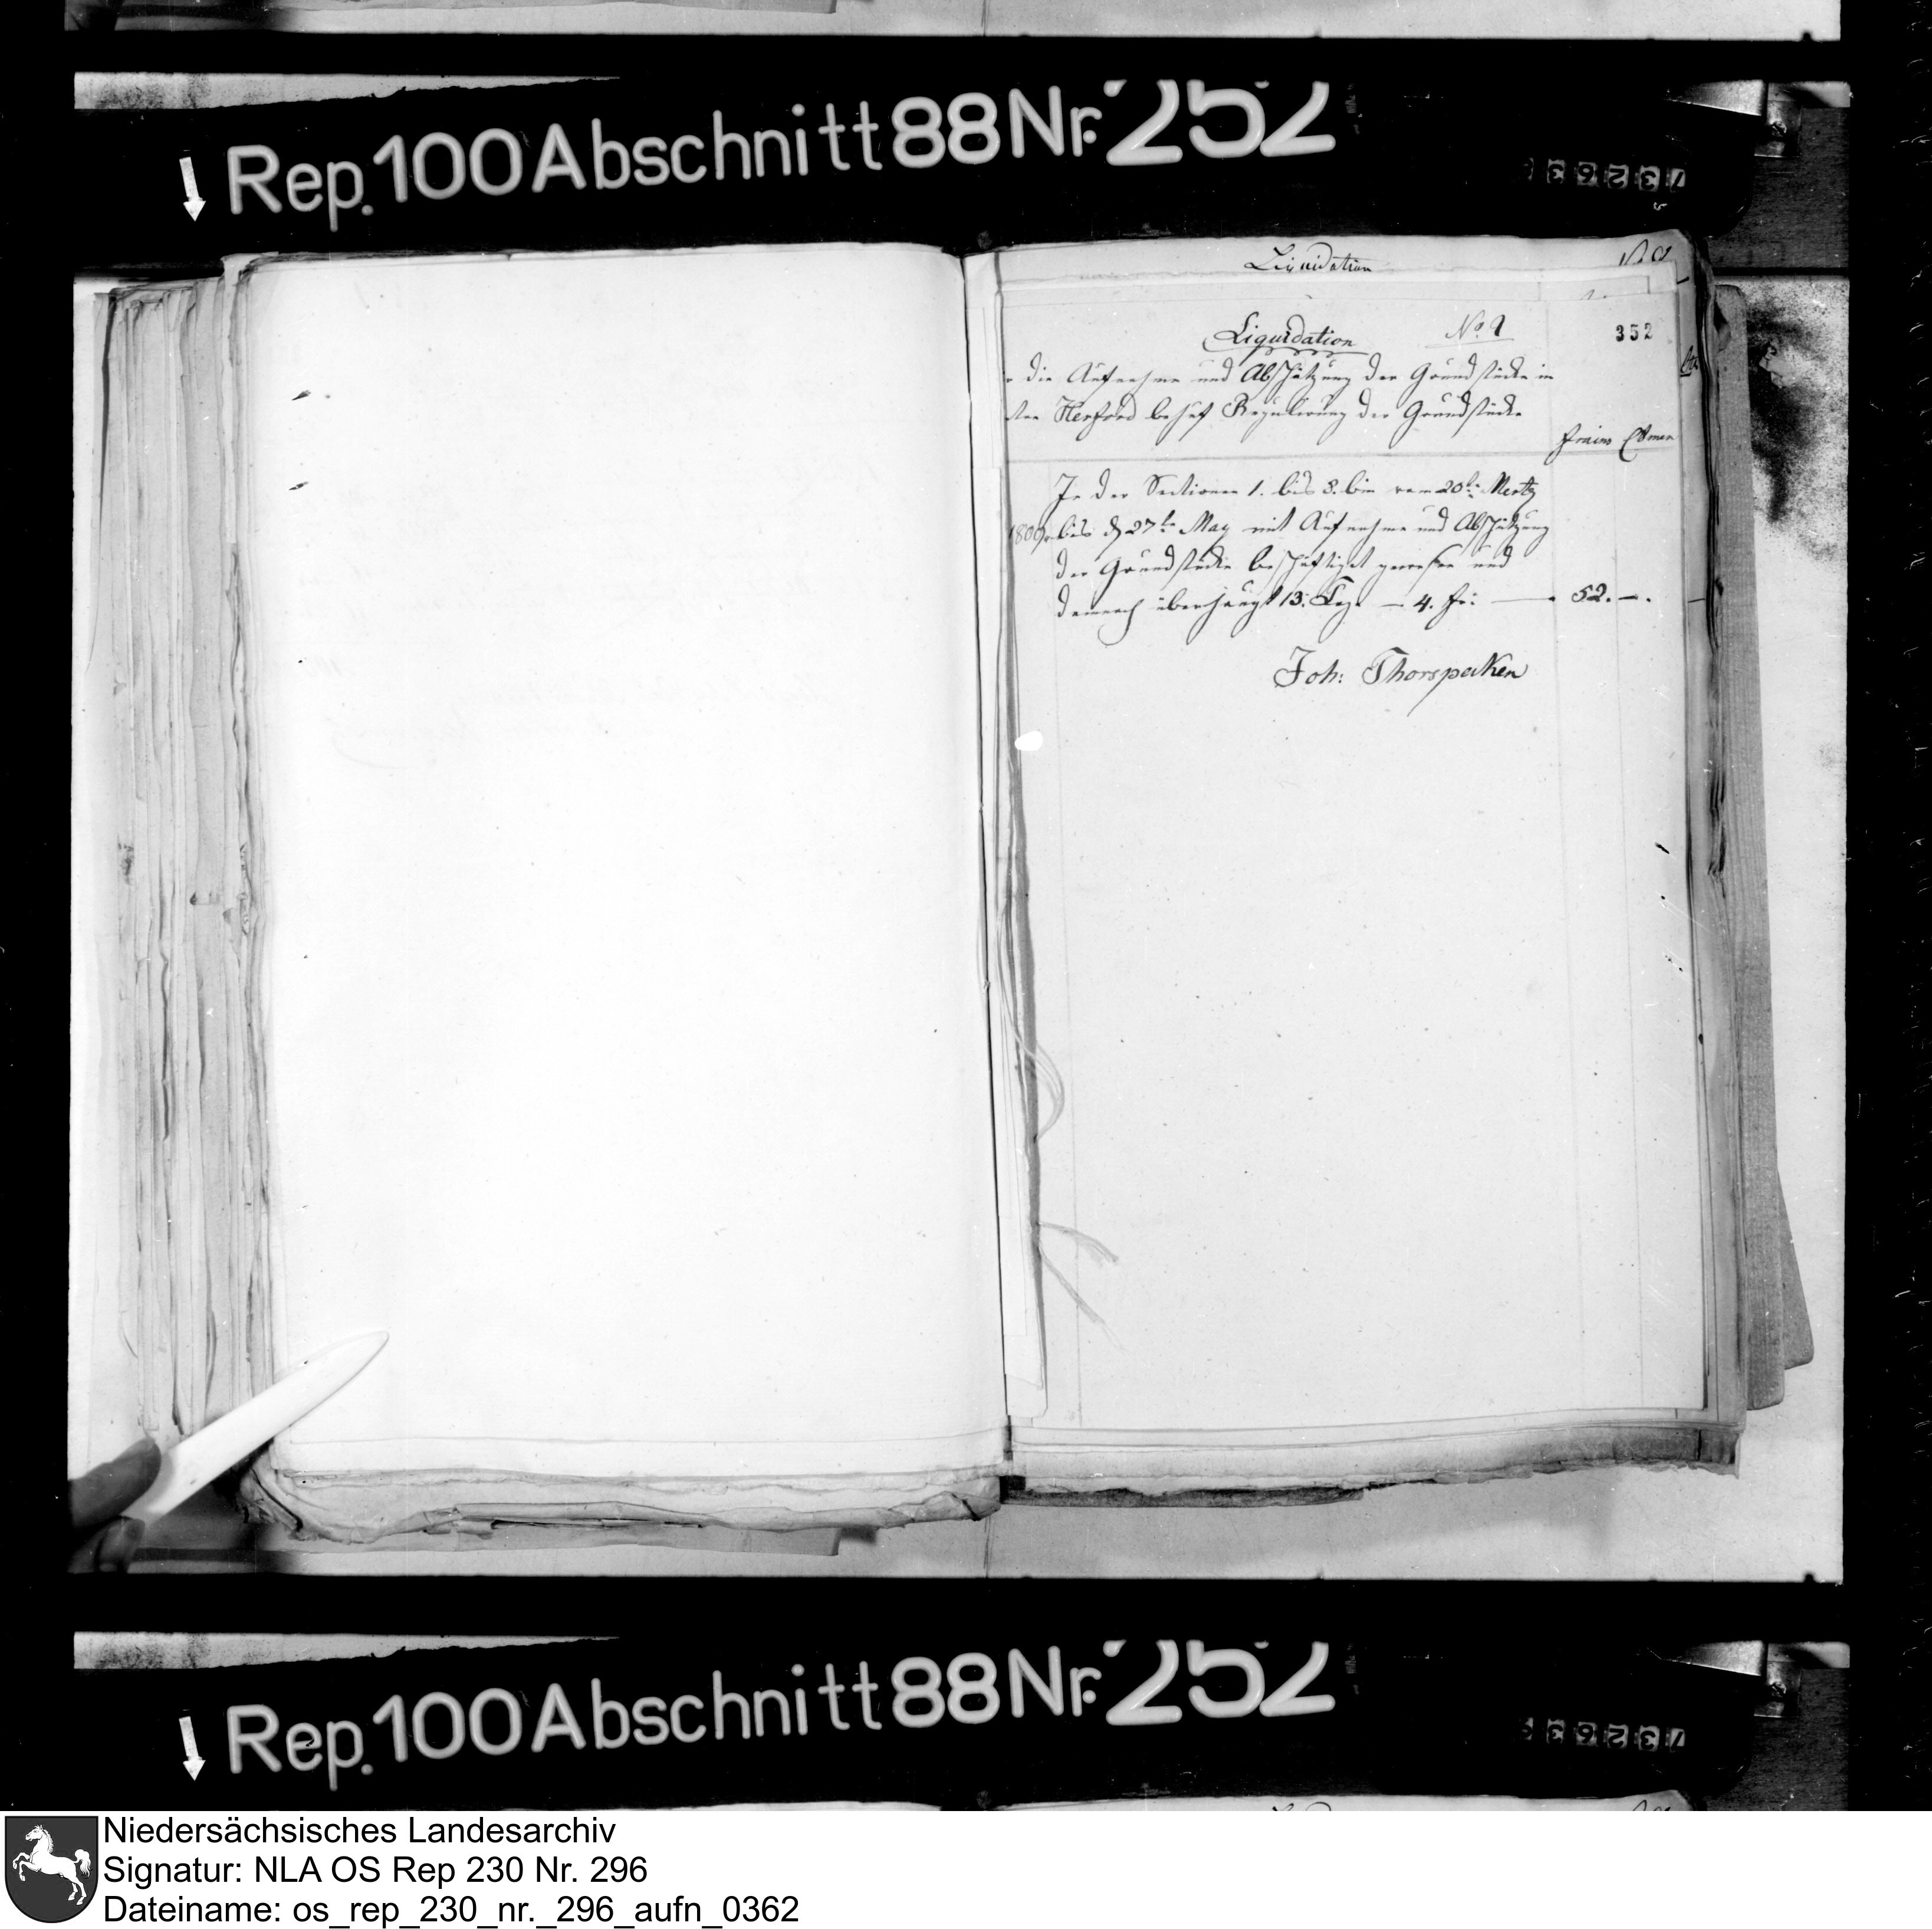 Rep. 100 Abschnitt 88 Nr. 252
Liquidation
Liquidation No 9
352
die Aufnahme und Abschätzung der Grundstücke in
Herford behuf Regulirung der Grundstücke
In der Sectionen 1. bis 8. bin vom 20t: Mertz
1809. bis d 27te May mit Aufnahme und Abschätzung
der Grundstücke beschäftiget gewesen und
demnach überhaupt 13. Tag. — 4. fr: — 52. —.
Joh: Thorspecken
Rep. 100 Abschnitt 88 Nr. 252
Niedersächsisches Landesarchiv
Signatur: NLA OS Rep 230 Nr. 296
Dateiname: os_rep_230_nr._296_aufn_0362